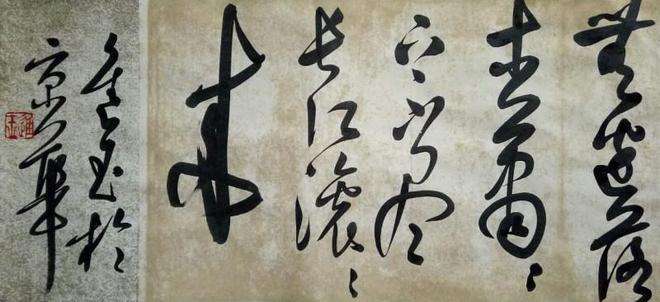 無邊落
木蕭々
下不盡
長江滾々
來
玉於
京華